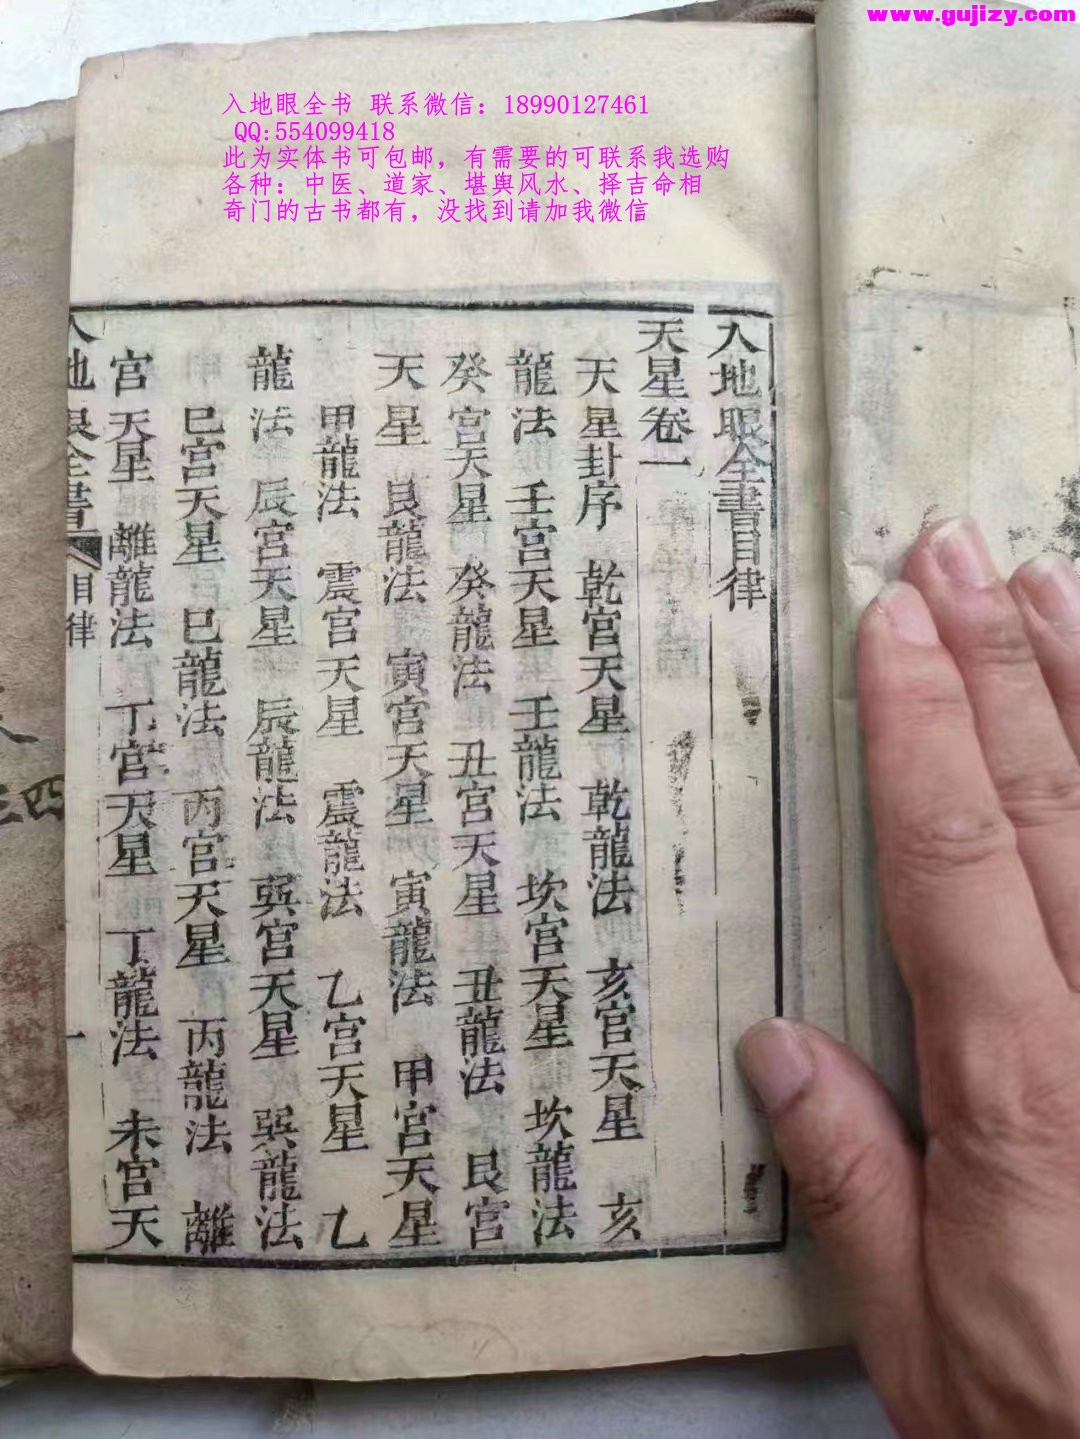 www.gujizy.com
入地眼全书 联系微信：18990127461
QQ:554099418
此为实体书可包邮，有需要的可联系我选购
各种：中医、道家、堪舆风水、择吉命相
奇门的古书都有，没找到请加我微信
入地眼全書目律
天星卷一
天星卦序 乾宮天星 乾龍法 亥宮天星 亥
龍法 壬宮天星 壬龍法 坎宮天星 坎龍法
癸宮天星 癸龍法 丑宮天星 丑龍法 艮宮
天星 艮龍法 寅宮天星 寅龍法 甲宮天星
甲龍法 震宮天星 震龍法 乙宮天星 乙
龍法 辰宮天星 辰龍法 巽宮天星 巽龍法
巳宮天星 巳龍法 丙宮天星 丙龍法 離
宮天星 離龍法 丁宮天星 丁龍法 未宮天
入地眼全書 目律 一
四